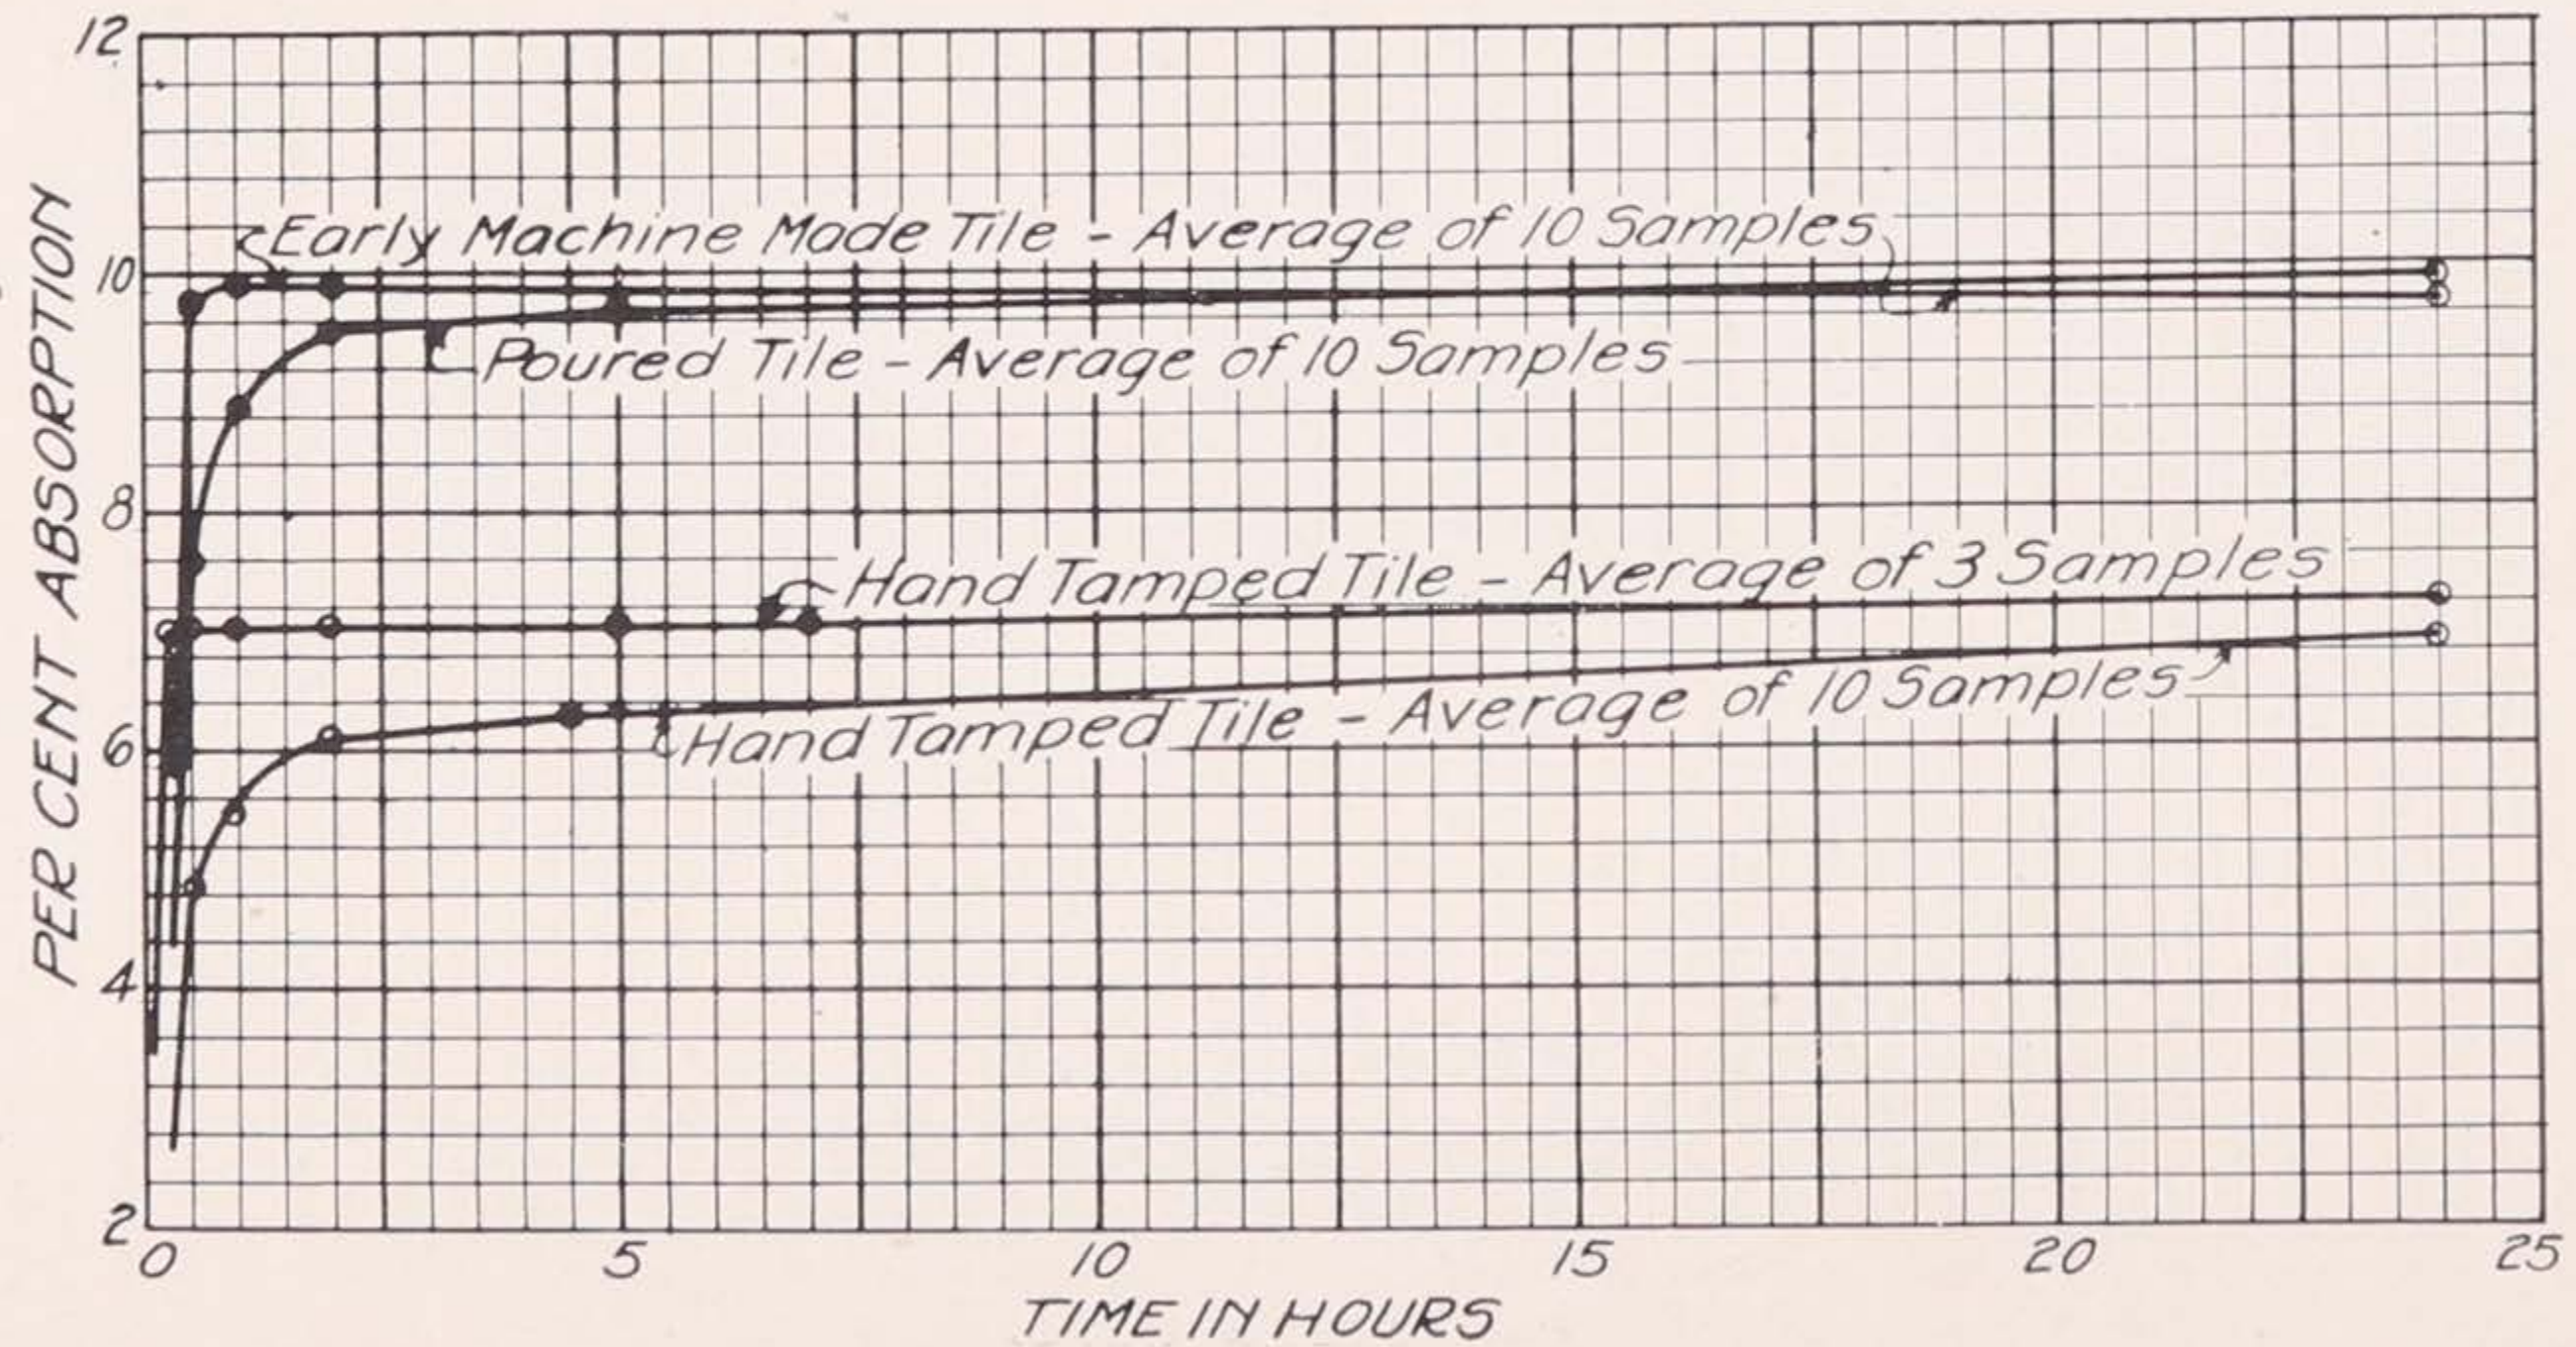 12
10
8
6
4
2
PER CENT ABSORPTION
Early Machine Made Tile - Average of 10 Samples
Poured Tile - Average of 10 Samples
Hand Tamped Tile - Average of 3 Samples
Hand Tamped Tile - Average of 10 Samples
0 5 10 15 20 25
TIME IN HOURS